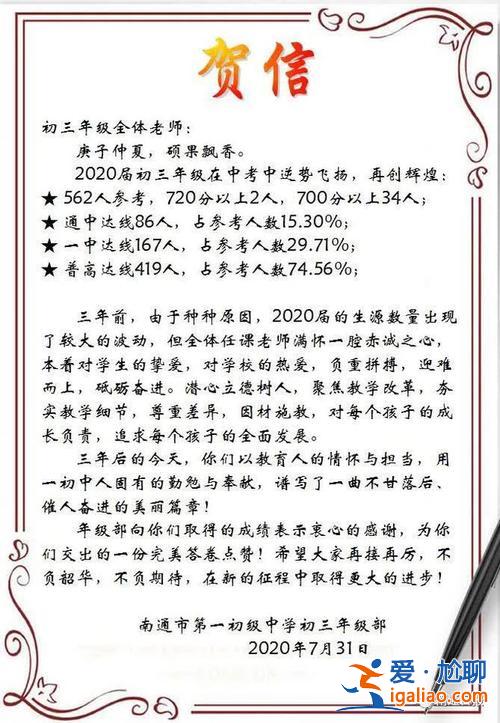 贺信
初三年级全体老师：
庚子仲夏，硕果飘香。
2020届初三年级在中考中逆势飞扬，再创辉煌：
★ 562人参考，720分以上2人，700分以上34人；
★ 通中达线86人，占参考人数15.30%；
★ 一中达线167人，占参考人数29.71%；
★ 普高达线419人，占参考人数74.56%；
三年前，由于种种原因，2020届的生源数量出现
了较大的波动，但全体任课老师满怀一腔赤诚之心，
本着对学生的挚爱，对学校的热爱，负重拼搏，迎难
而上，砥砺奋进。潜心立德树人，聚焦教学改革，夯
实教学细节，尊重差异，因材施教，对每个孩子的成
长负责，追求每个孩子的全面发展。
三年后的今天，你们以教育人的情怀与担当，用
一初中人固有的勤勉与奉献，谱写了一曲不甘落后、
催人奋进的美丽篇章！
年级部向你们取得的成绩表示衷心的感谢，为你
们交出的一份完美答卷点赞！希望大家再接再厉，不
负韶华，不负期待，在新的征程中取得更大的进步！
南通市第一初级中学初三年级部
2020年7月31日
爱·尬聊
igaliao.com